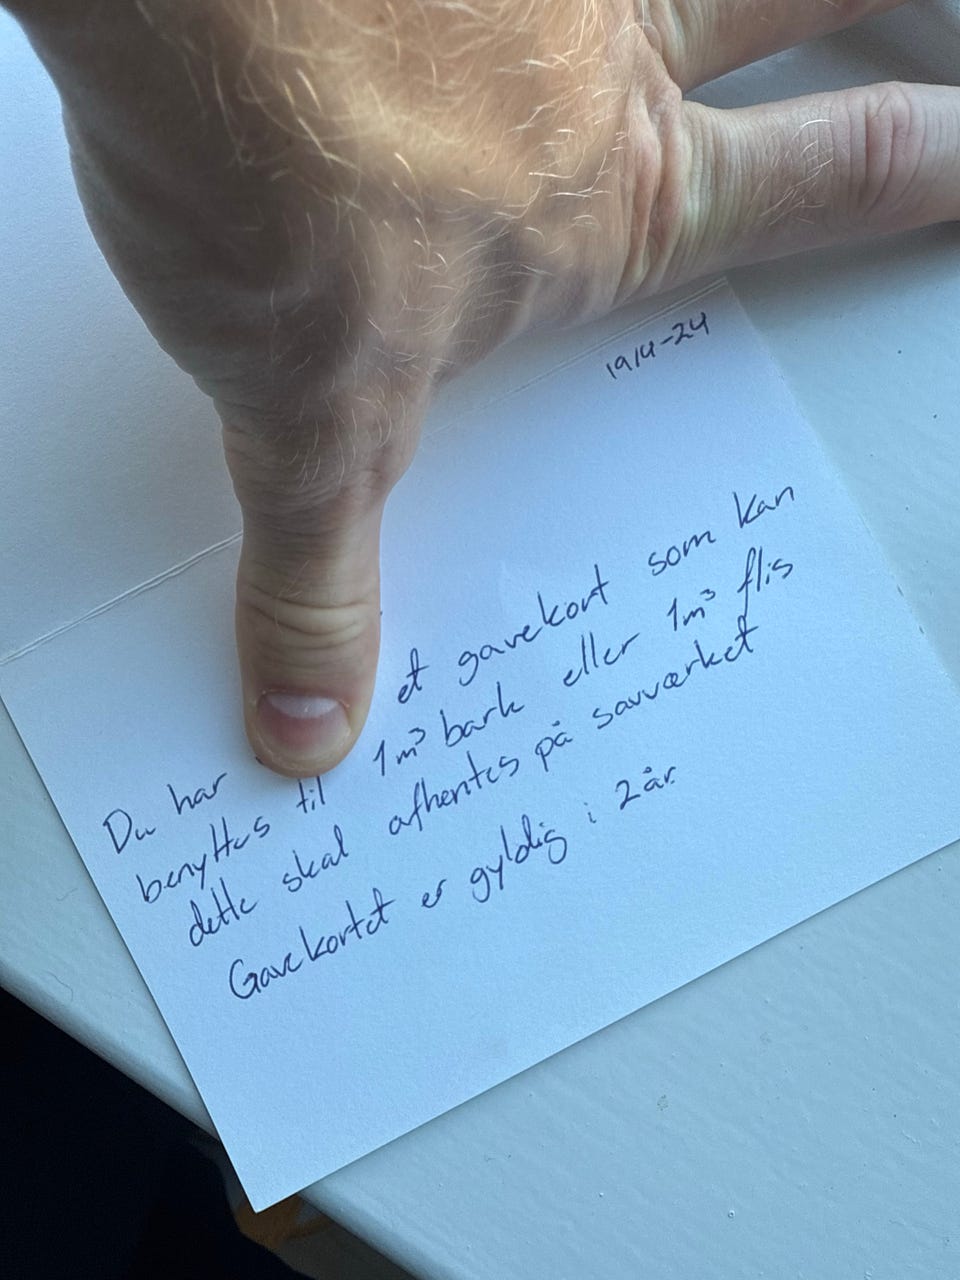 19/4-24
Du har et gavekort som kan
benyttes til 1m³ bark eller 1m³ flis
dette skal afhentes på savværket
Gavekortet er gyldig i 2 år.